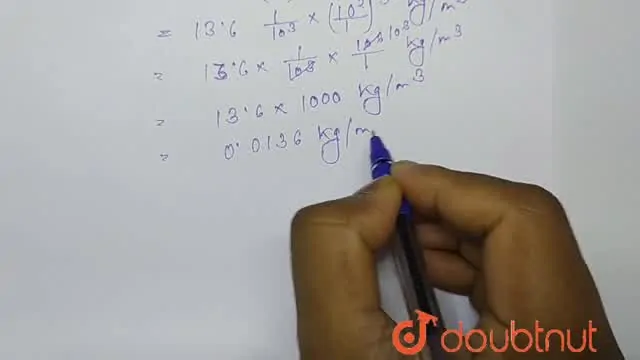 = 13.6 1/10³ × (10²/1)³ kg/m³
= 13.6 × 1/10³ × 10³/1 kg/m³
= 13.6 × 1000 kg/m³
= 0.0136 kg/m
doubtnut